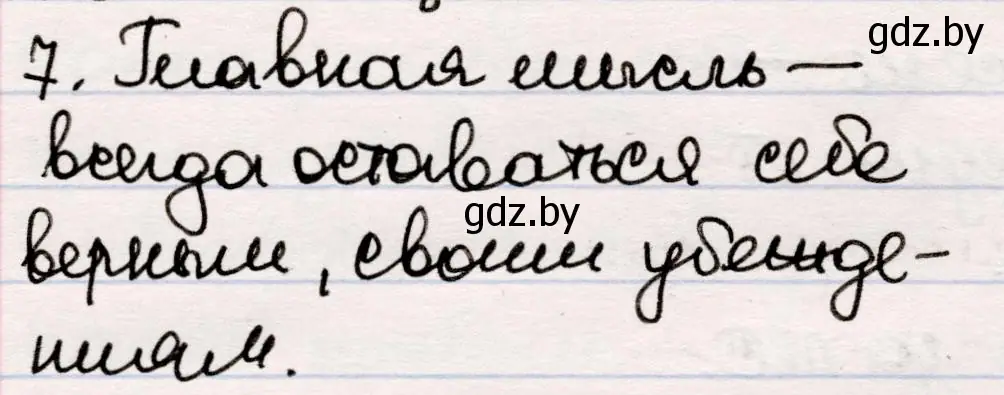 gdz.by
7. Главная мысль —
всегда оставаться себе
gdz.by
верным, своим убежде-
ниям.